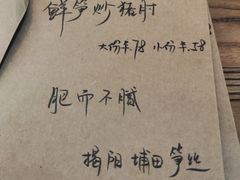 鲜笋炒猪肘
大份¥.78 小份¥.58
肥而不腻
揭阳 埔田 笋丝